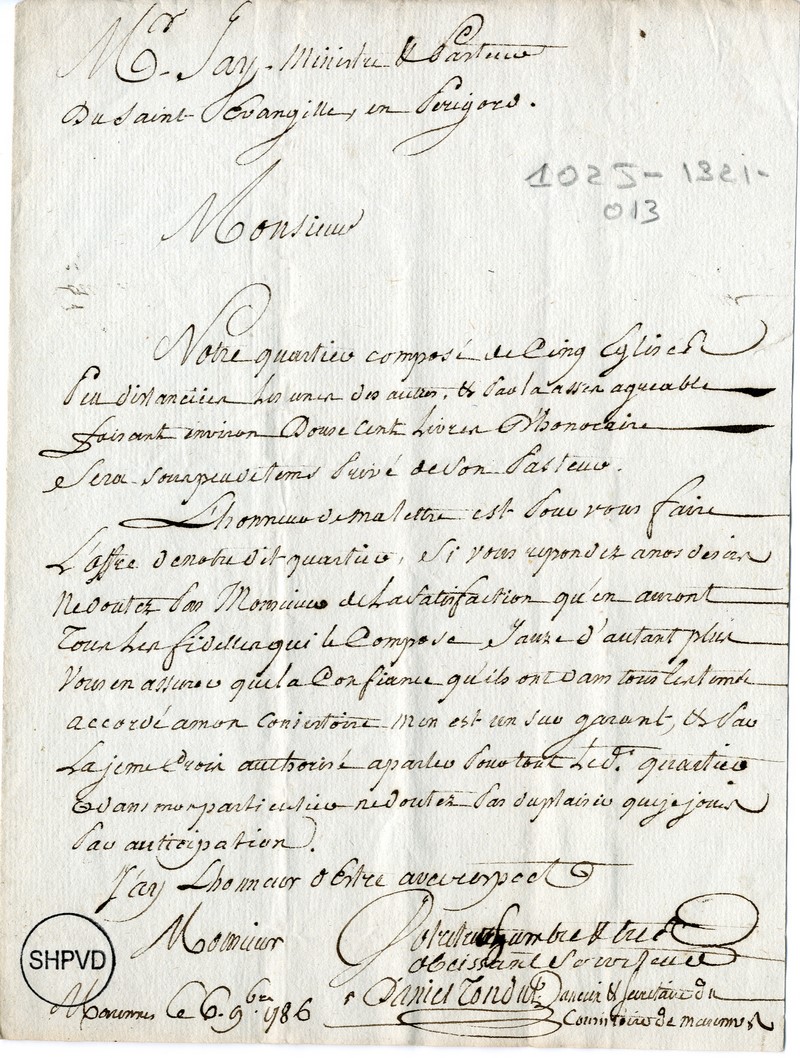 Mr. Jay. Ministre & Pasteur
Du Saint Evangille, en Périgord.
1025-1821-
013
Monsieur
Notre quartier composé de Cinq Eglises
Peu distanciées Les unes des autres, & Par la assez agreable
faisant environ Douse Cent Livres D'honoraire
Sera sous peu de tems Privé de Son Pasteur.
L'honneur de ma lettre est Pour vous faire
L'offre de notre dit quartier, Si vous repondez a nos desirs
Ne doutez Pas Monsieur de La Satisfaction qu'en auront
Tous Les fidelles qui le Compose J'auze d'autant plus
Vous en assurer que la Confiance qu'ils ont dans tous Les tems
accordé a mon Consistoire m'en est un sur garant, & Par
La je me Crois authorisé a parler Pour tout Le dt. quartier
& dans mon particulier ne doutez Pas du plaisir que je jouis
Par anticipation.
J'ay L'honneur d'Estre avec respect
Monsieur
Votre tres humble & tres
obeissant Serviteur
Daniel Tondut ancien & secretaire du
Consistoire de marennes
Marennes Le 6. 9bre 1786
SHPVD